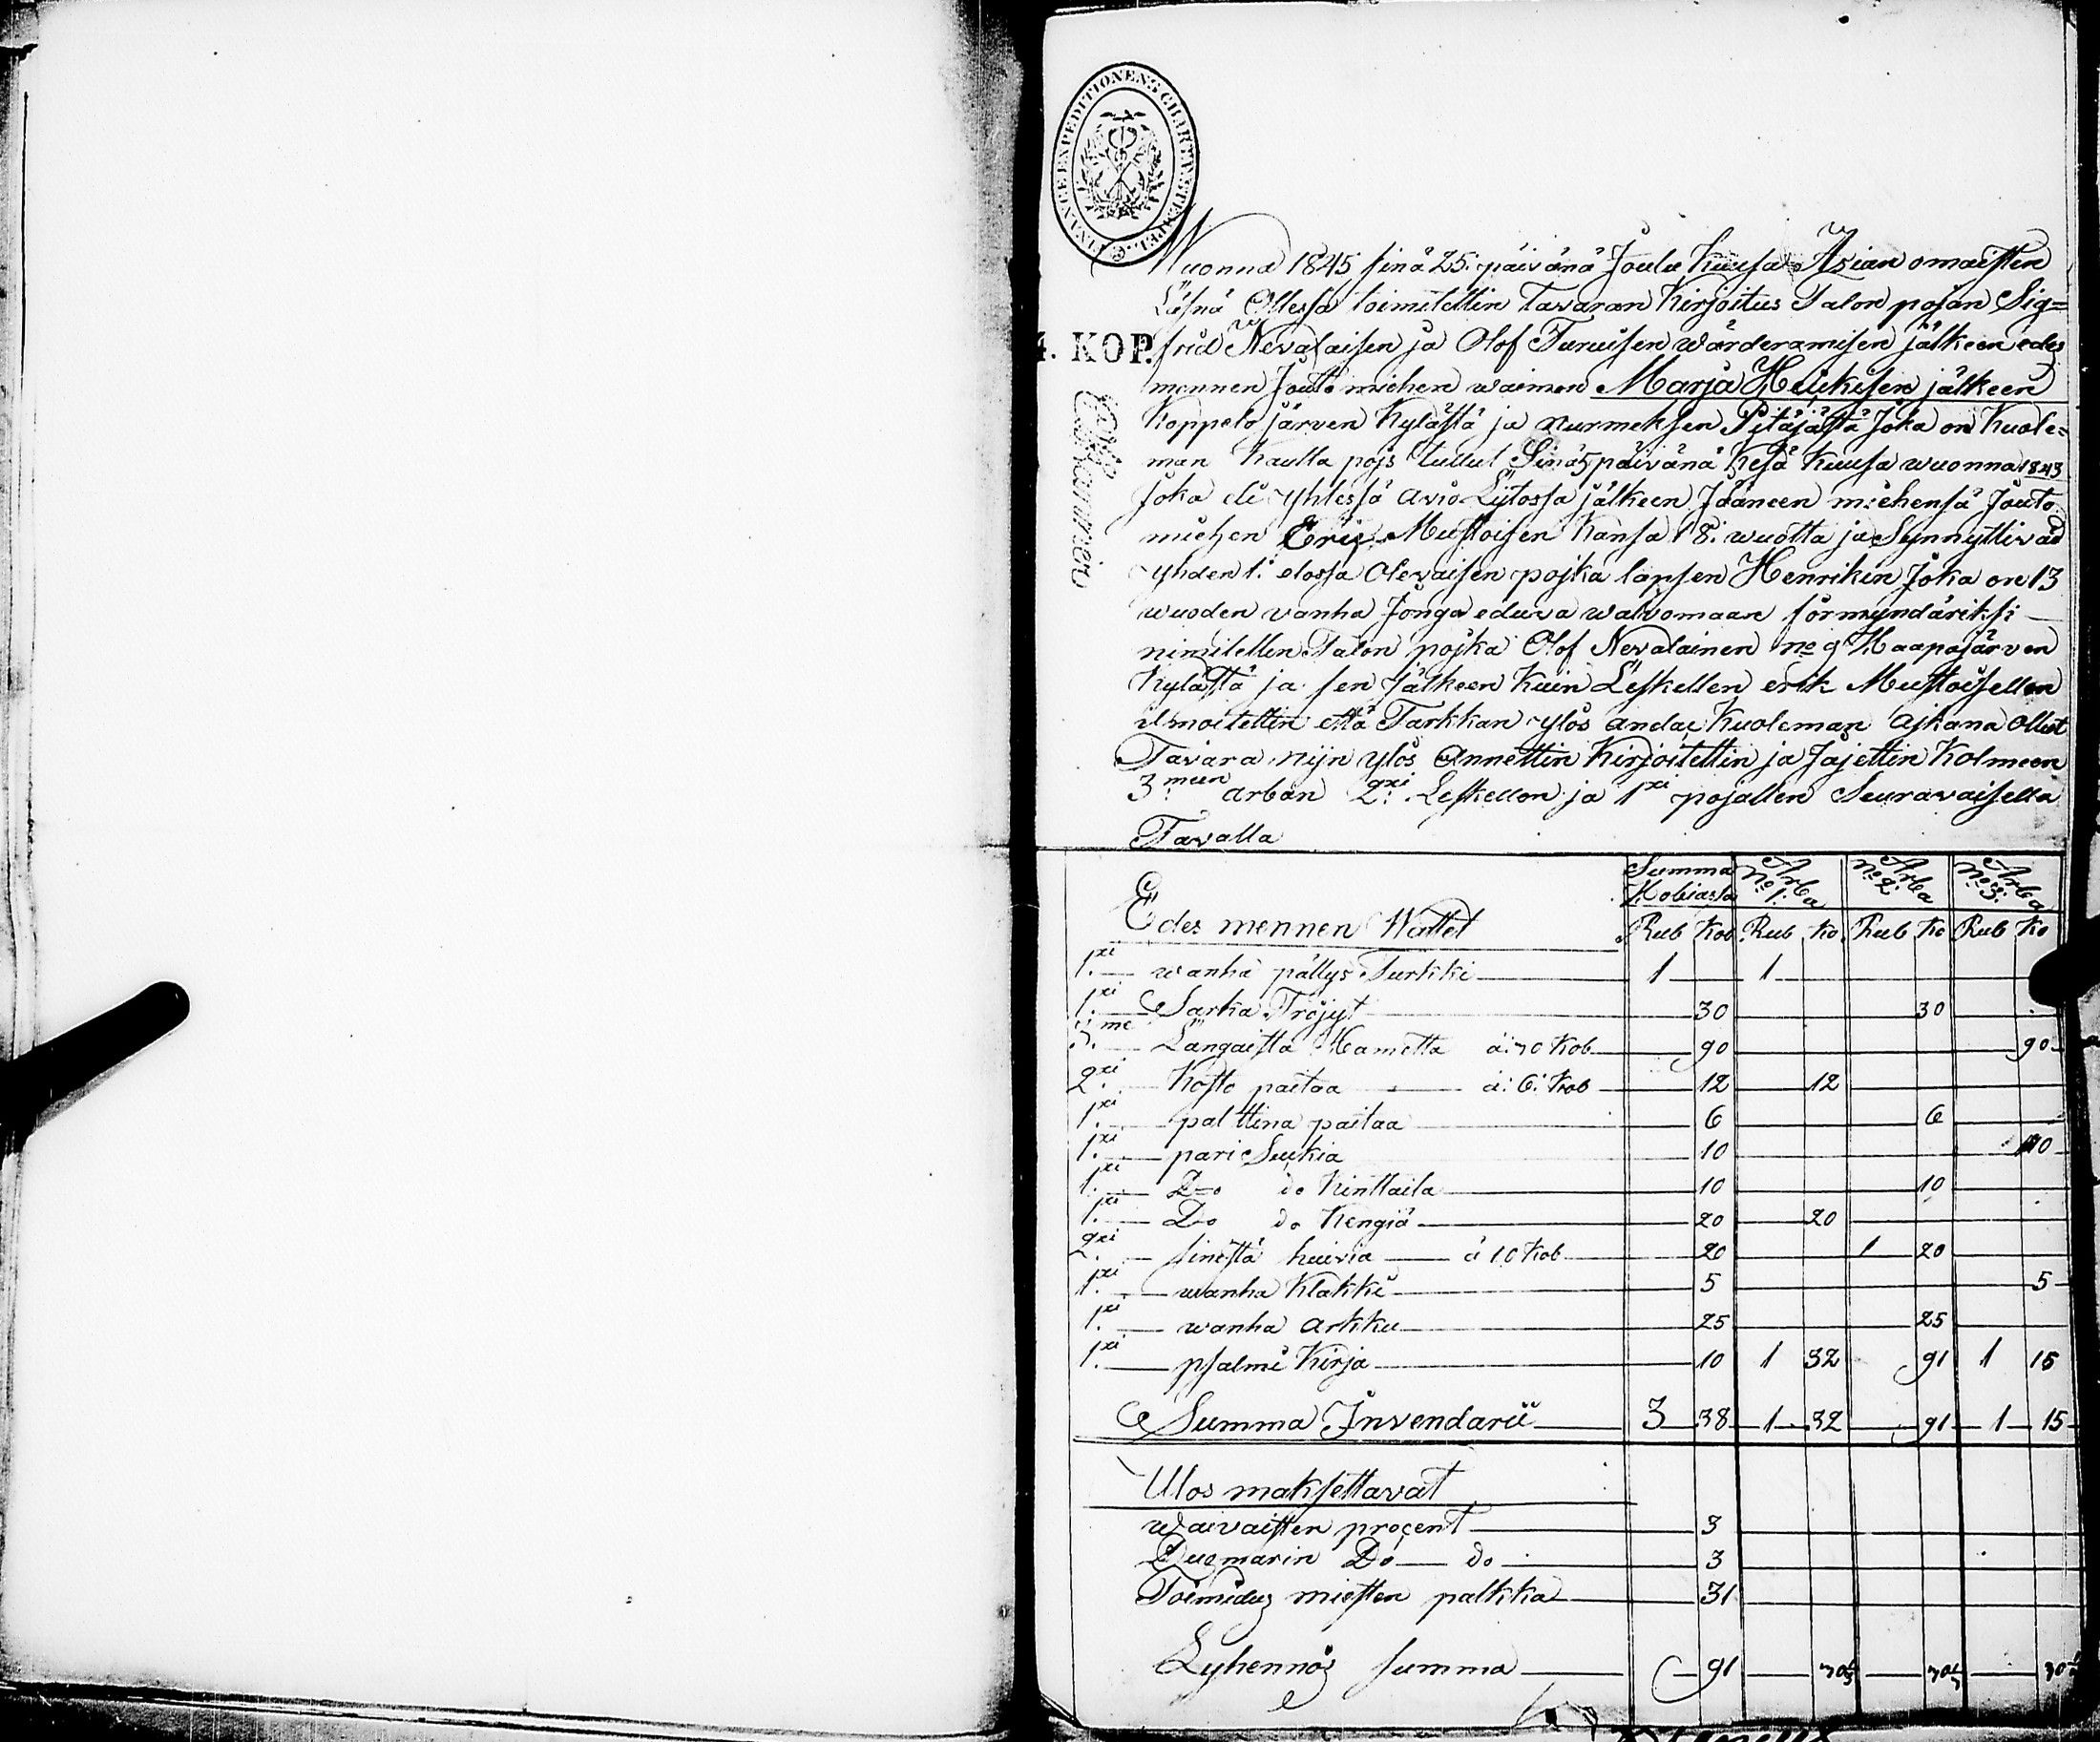 FINANCE EXPEDITIONENS CHARTÆ STEMPEL
4. KOP.
Wuonna 1845 sinä 25. päivänä Joulu Kuusa Asian omaisten
Läsnä Ollessa toimitettin Tavaran Kirjoitus Talon pojan Sig=
frid Nevalaisen ja Olof Turuisen wärderamisen jälkeen edes
mennen Jouto miehen waimon Marja Heikisen jälkeen
Koppelo järven Kylästä ja nurmeksen Pitäjästä Joka on Kuole=
man kautta pojs tullut Sinä 5 päivänä Kesä Kuusa wuonna 1843
Joka eli yhtessä avio Lijtossa jälkeen Jääneen miehensä Jouto
miehen Eric Mustoisen Kansa 18. wuotta ja Synnyttivät
yhden 1. elossa Olevaisen pojka lapsen Henrikin Joka on 13
wuoden vanha Jonga eduva walvomaan förmyndäriksi
nimitettin Talon pojka Olof Nevalainen no 9 Haapojärven
Kylästä ja sen Jälkeen Kuin Leskellen erik Mustoisellen
ilmoitettin että Tarkkan ylös andaa Kuoleman Ajkana Ollut
Tavara nijn ylös Annettin Kirjoitettin ja Jajettin Kolmeen
3:meen arban 2:xi Leskellen ja 1xi pojallen Seuravaisella
Tavalla
Edes mennen Wattet Summa Hobiassa Arba no 1. Arba no 2. Arba no 3.
Rub Kob Rub Ko Rub Ko Rub Ko
1.xi wanha pällys Turkki 1 1
1.xi Sarka Tröjyt 30 30
3.me Langaista Hametta á: 30 Kob 90 90
2.xi Kosto paitaa á: 6: Kob 12 12
1.xi palttina paitaa 6 6
1.xi pari Sukia 10 10
1.xi Do do Kinttaita 10 10
1.xi Do do Kengiä 20 20
2.xi sinistä huivia á 10 Kob 20 1 20
1.xi wanha Klakki 5 5
1.xi wanha Arkku 25 25
1.xi psalmi Kirja 10 1 32 91 1 15
Summa Invendarii 3 38 1 32 91 1 15
Ulos maksettavat
waivaisten procent 3
Duomarin Do do 3
Toimidus miesten palkka 31
Lyhennös summa 91 30 1/3 30 1/3 30 1/3